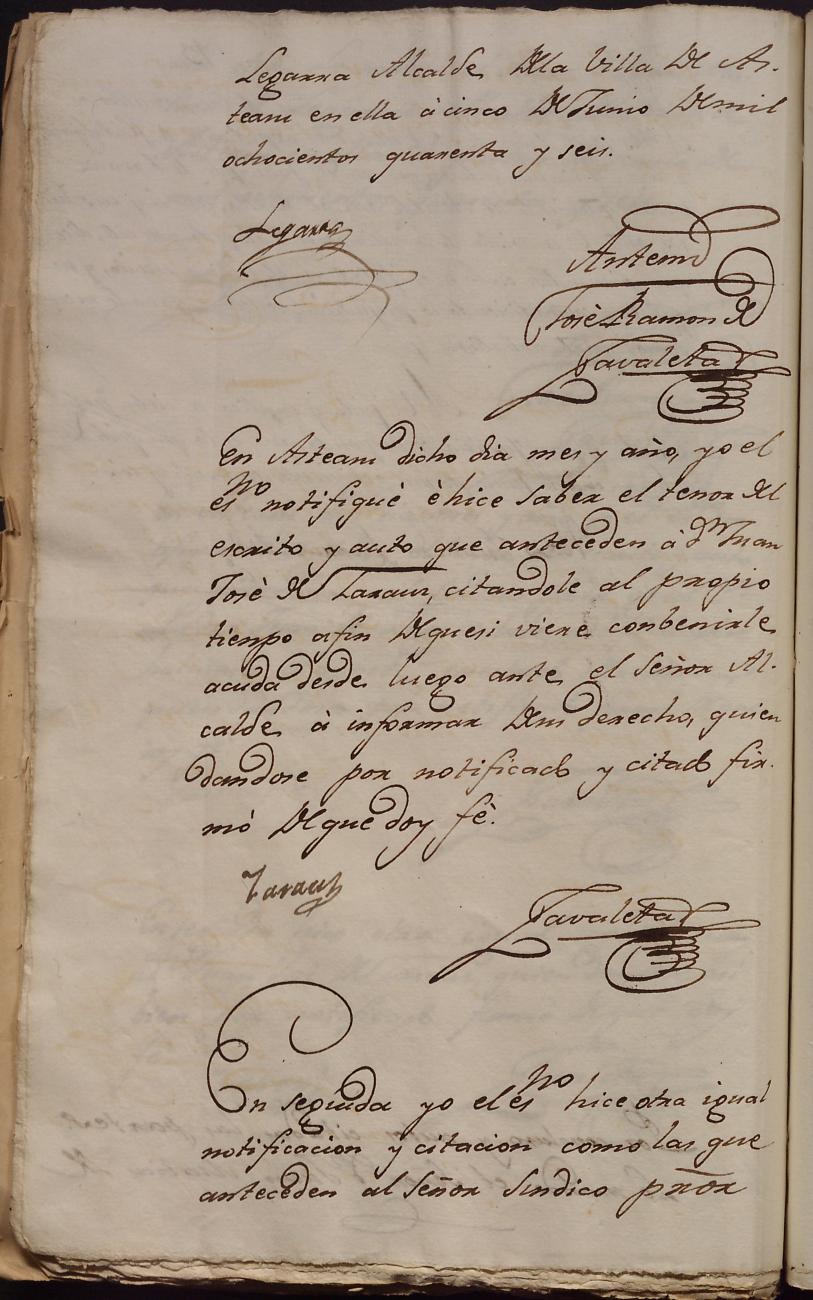 Legarra Alcalde, Dela Villa De As-
teasu en ella à cinco De Junio De mil
ochocientos quarenta y seis.
Legarra
Antemi
Josè Ramon de
Zavaleta
En Asteasu dicho dia mes y año, yo el
esno notifiquè è hice saber el tenor del
escrito y auto que anteceden à Dn Juan
Josè de Zarauz, citandole al propio
tienpo afin Dequesi viere conbenirle,
acuda desde luego ante el Señor Al-
calde à informar Desu derecho, quien
dandose por notificado y citado fir-
mó De que doy fè.
Zarauz
Zavaleta
En seguida yo el esno hice otra igual
notificacion y citacion como las que
anteceden al Señor Sindico pror